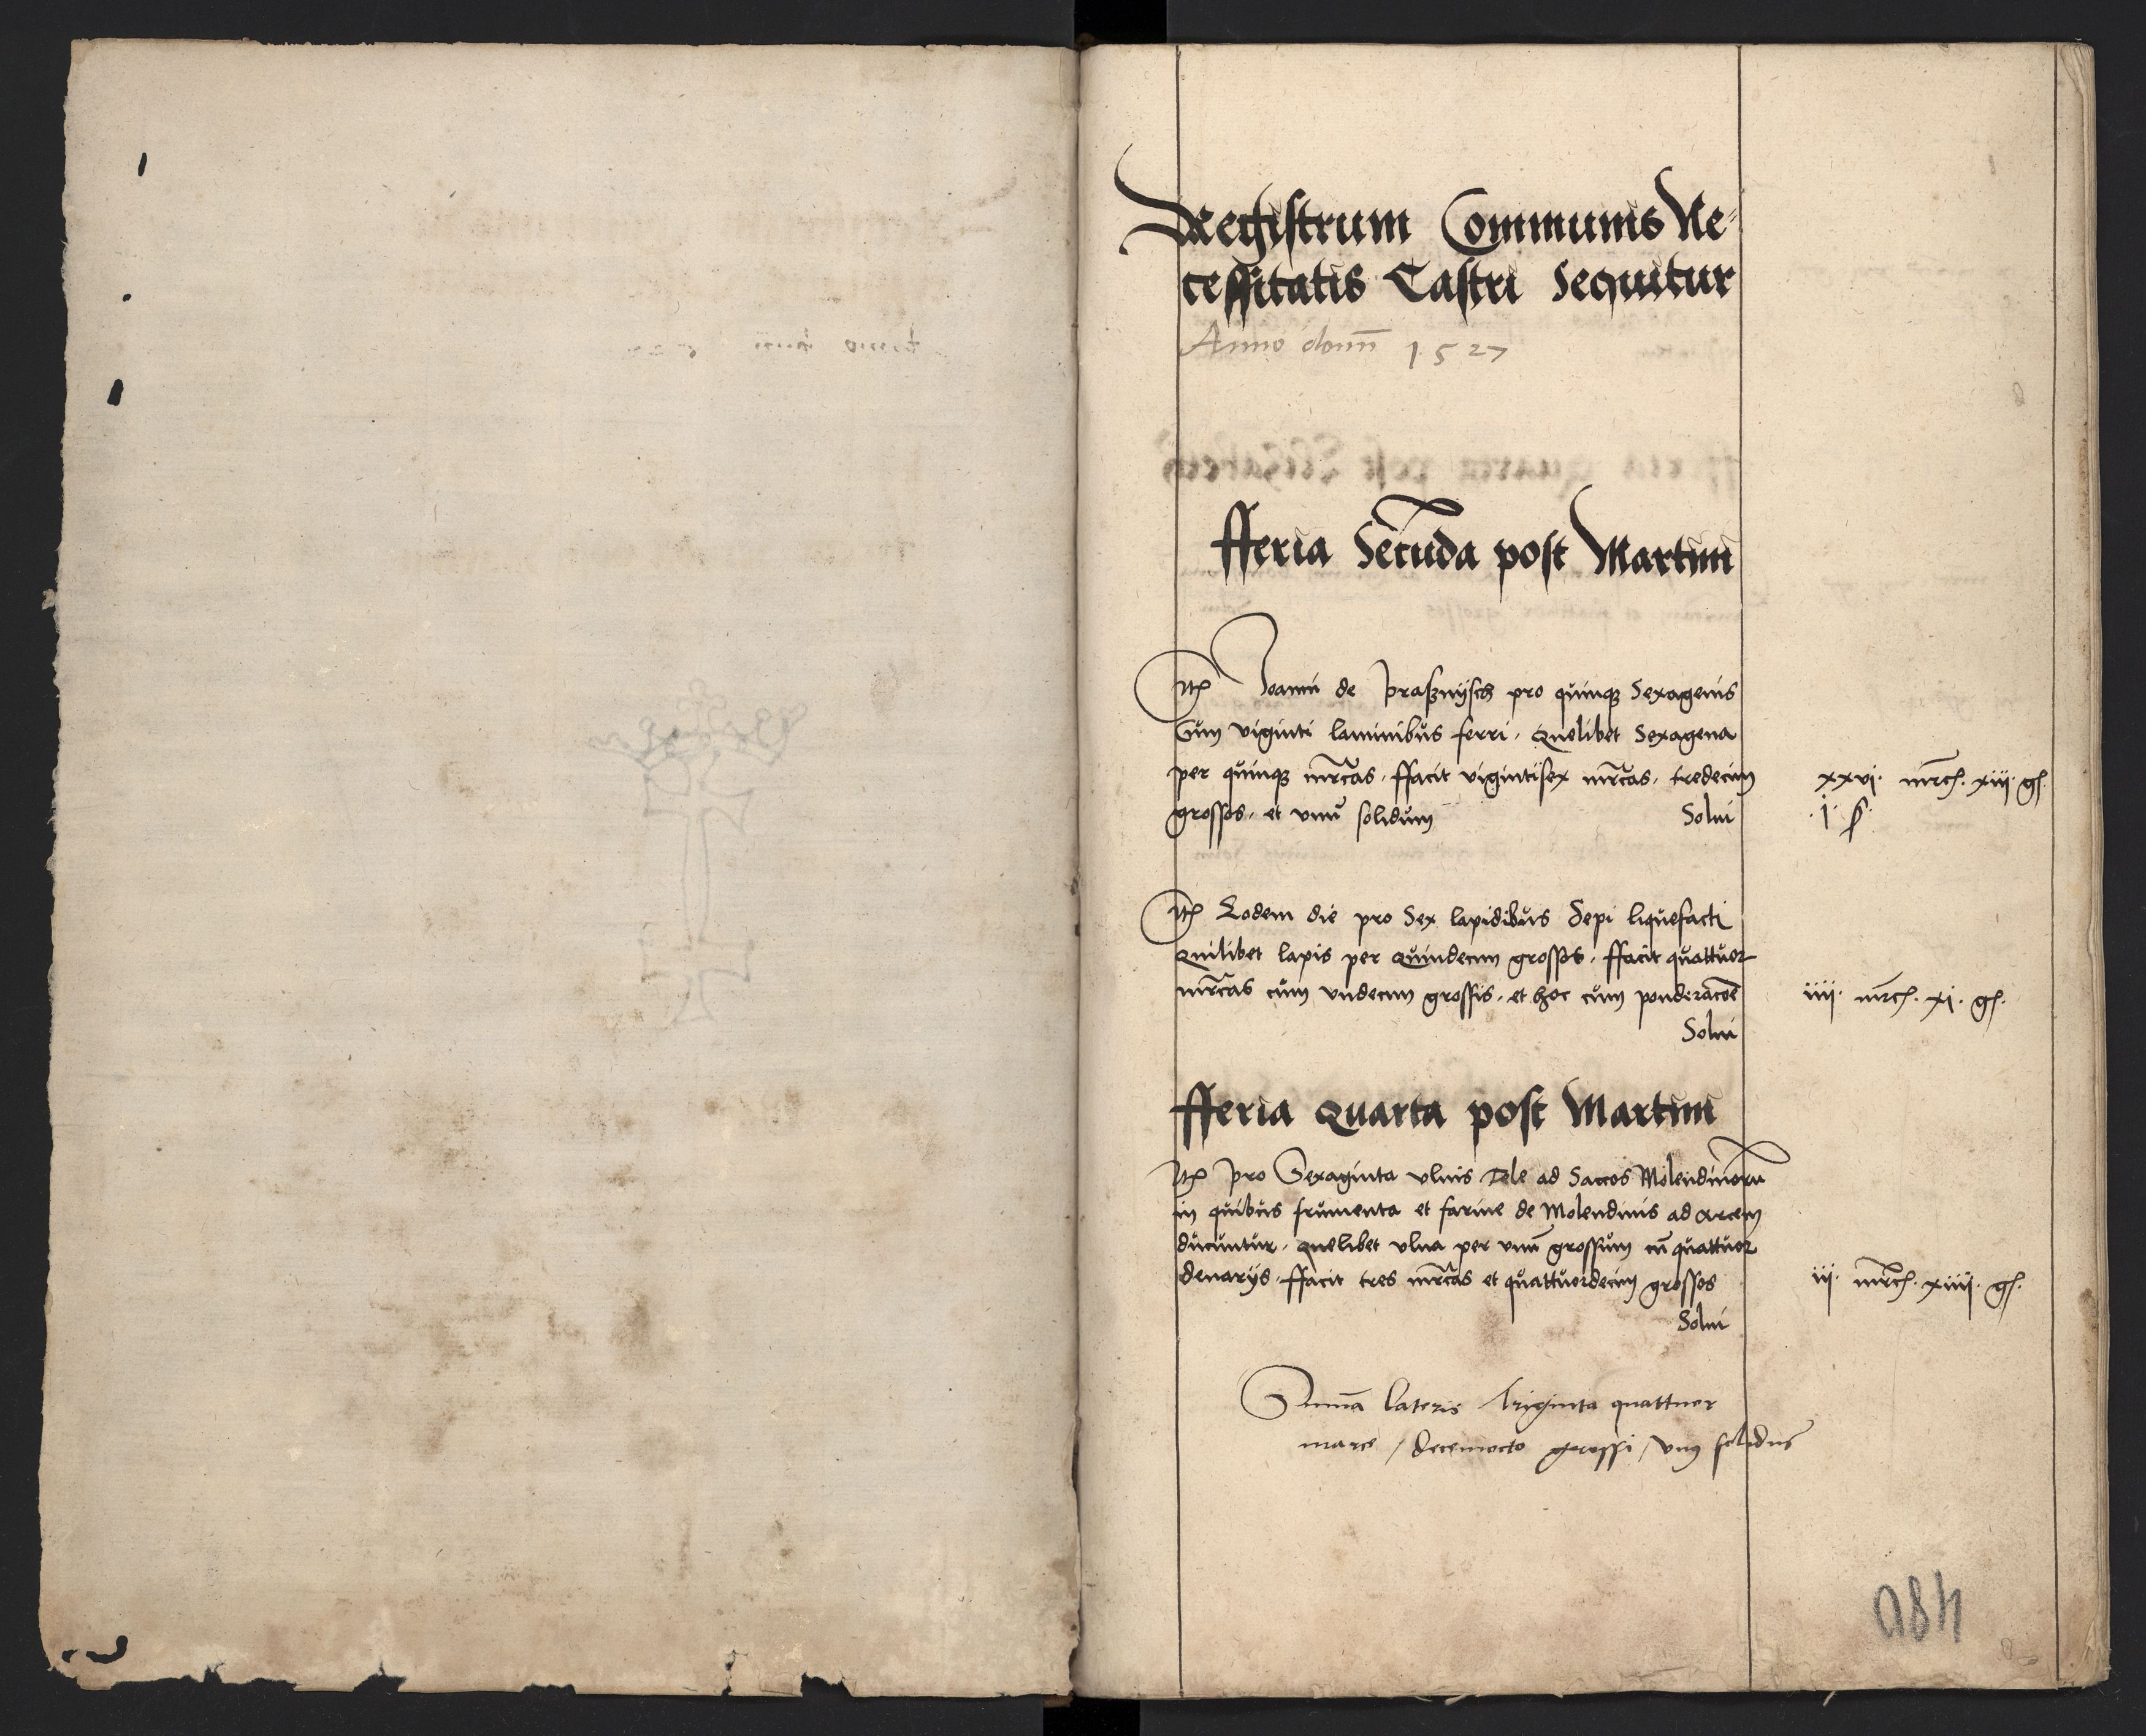 Registrum Communis Ne-
cessitatis Castri Sequitur
Anno domī 1527
fferia Secūda post Martini
Itē Joanni de Prasznijsch pro quinqȝ Sexagenis
Cum viginti laminibus ferri, Quelibet Sexagena
per quinqȝ mr̄cas, ffacit vigintisex mr̄cas, tredecim
grossos, et vnū solidum Solui
xxvi· mrc̄· xiij· gſ·
·j· ſ·
Itē Eodem die pro Sex lapidibus Sepi liquefacti
Quilibet lapis per Quindecim grossos, ffacit quattuor
mr̄cas cum vndecim grossis, et hoc cum ponderacōe
Solui
iiij· mrc̄· xi· gſ·
fferia Quarta post Martini
Itē pro Sexaginta vlnis Tele ad Saccos Molendinorū
in quibus frumenta et farine de Molendinis ad Arcem
ducuntur, quelibet vlna per vnū grossum cū quattuor
denarijs, ffacit tres mr̄cas et quattuordecim grossos
Solui
iij· mrc̄· xiiij· gſ·
Sum̄a lateris triginta quattuor
marce / decemocto grossi / vnꝰ solidus